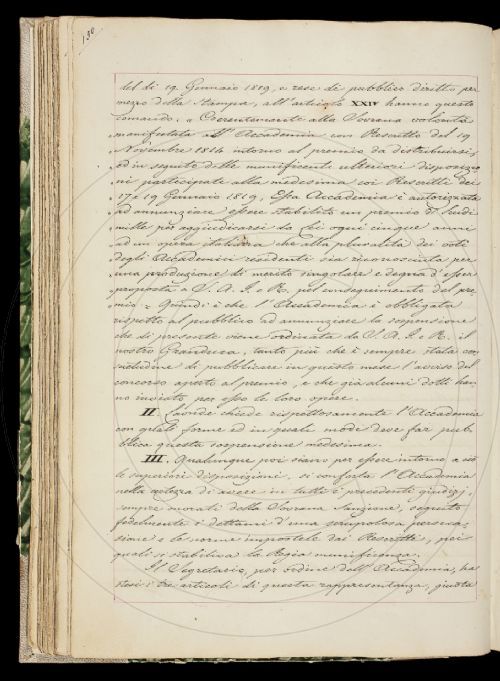 130
del dì 19. Gennaio 1819, e rese di pubblico diritto per
mezzo della stampa, all'articolo XXIV hanno questo
comando. „ Coerentemente alla Sovrana volontà
„ manifestata all'Accademia, con Rescritto del 19
„ Novembre 1814 intorno al premio da distribuirsi,
„ ed in seguito delle munificenti ulteriori disposizio
„ ni partecipate alla medesima coi Rescritti dei
„ 17 e 19 Gennaio 1819, Essa Accademia è autorizzata
„ ad annunziare essere stabilito un premio di Scudi
„ mille per aggiudicarsi da Lei ogni cinque anni
„ ad un opera italiana che alla pluralità dei voti
„ degli Accademici residenti sia riconosciuta per
„ una produzione di merito singolare e degna d'esser
„ proposta a S. A. I. e R. pel conseguimento del pre
„ mio = Quindi è che l'Accademia è obbligata
rispetto al pubblico ad annunziare la sospensione
che di presente viene ordinata da S. A. I. e R. il
nostro Granduca, tanto più che è sempre stata con
suetudine di pubblicare in questo mese l'avviso del
concorso aperto al premio, e che già alcuni dotti han
no inviato per esso le loro opere.
II. Laonde chiede rispettosamente l'Accademia
con quali forme ed in qual modo deve far pub
blica questa sospensione medesima.
III. Qualunque poi siano per essere intorno a ciò
le superiori disposizioni, si conforta l'Accademia
nella certezza di avere in tutti i precedenti giudizj,
sempre onorati della Sovrana Sanzione, seguito
fedelmente i dettami d'una scrupolosa persua
sione e le norme impostele dai Rescritti, pei
quali si stabiliva la Regia munificenza.
Il Segretario, per ordine dell'Accademia, ha
stesi i tre articoli di questa rappresentanza, giusta